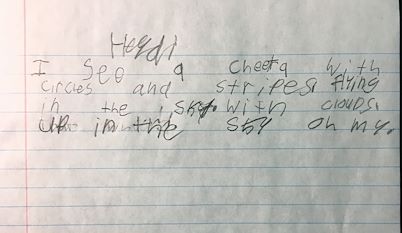 Heidi
I Seo a Cheeta with
circles and stripes flying
in the sky. with clouds.
up in the sky oh my.